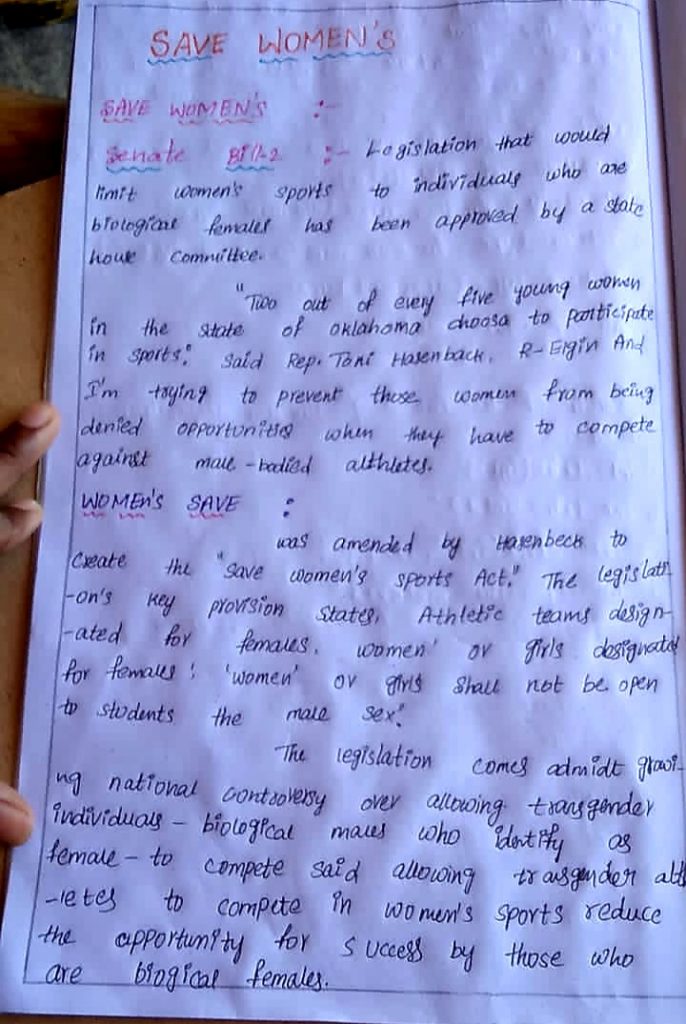 SAVE WOMEN'S
SAVE WOMEN'S :-
Senate Bill-2 :- Legislation that would
limit women's sports to individuals who are
biological females has been approved by a state
house committee.
"Two out of every five young women
in the state of oklahoma choosa to participate
in sports." Said Rep. Toni Hasenback, R-Elgin And
I'm trying to prevent those women from being
denied opportunities when they have to compete
against male-bodied althletes.
WOMEN'S SAVE :
was amended by Hasenbeck to
Create the "Save women's sports Act." The legislati
-on's key provision States, Athletic teams design-
-ated for females, women' or girls designated
for females; 'women' or girls shall not be open
to students the male sex."
The legislation comes admidt growi-
ng national controversy over allowing transgender
individuals - biological males who identify as
female - to compete said allowing transgender ath
-letes to compete in women's sports reduce
the opportunity for success by those who
are biogical females.